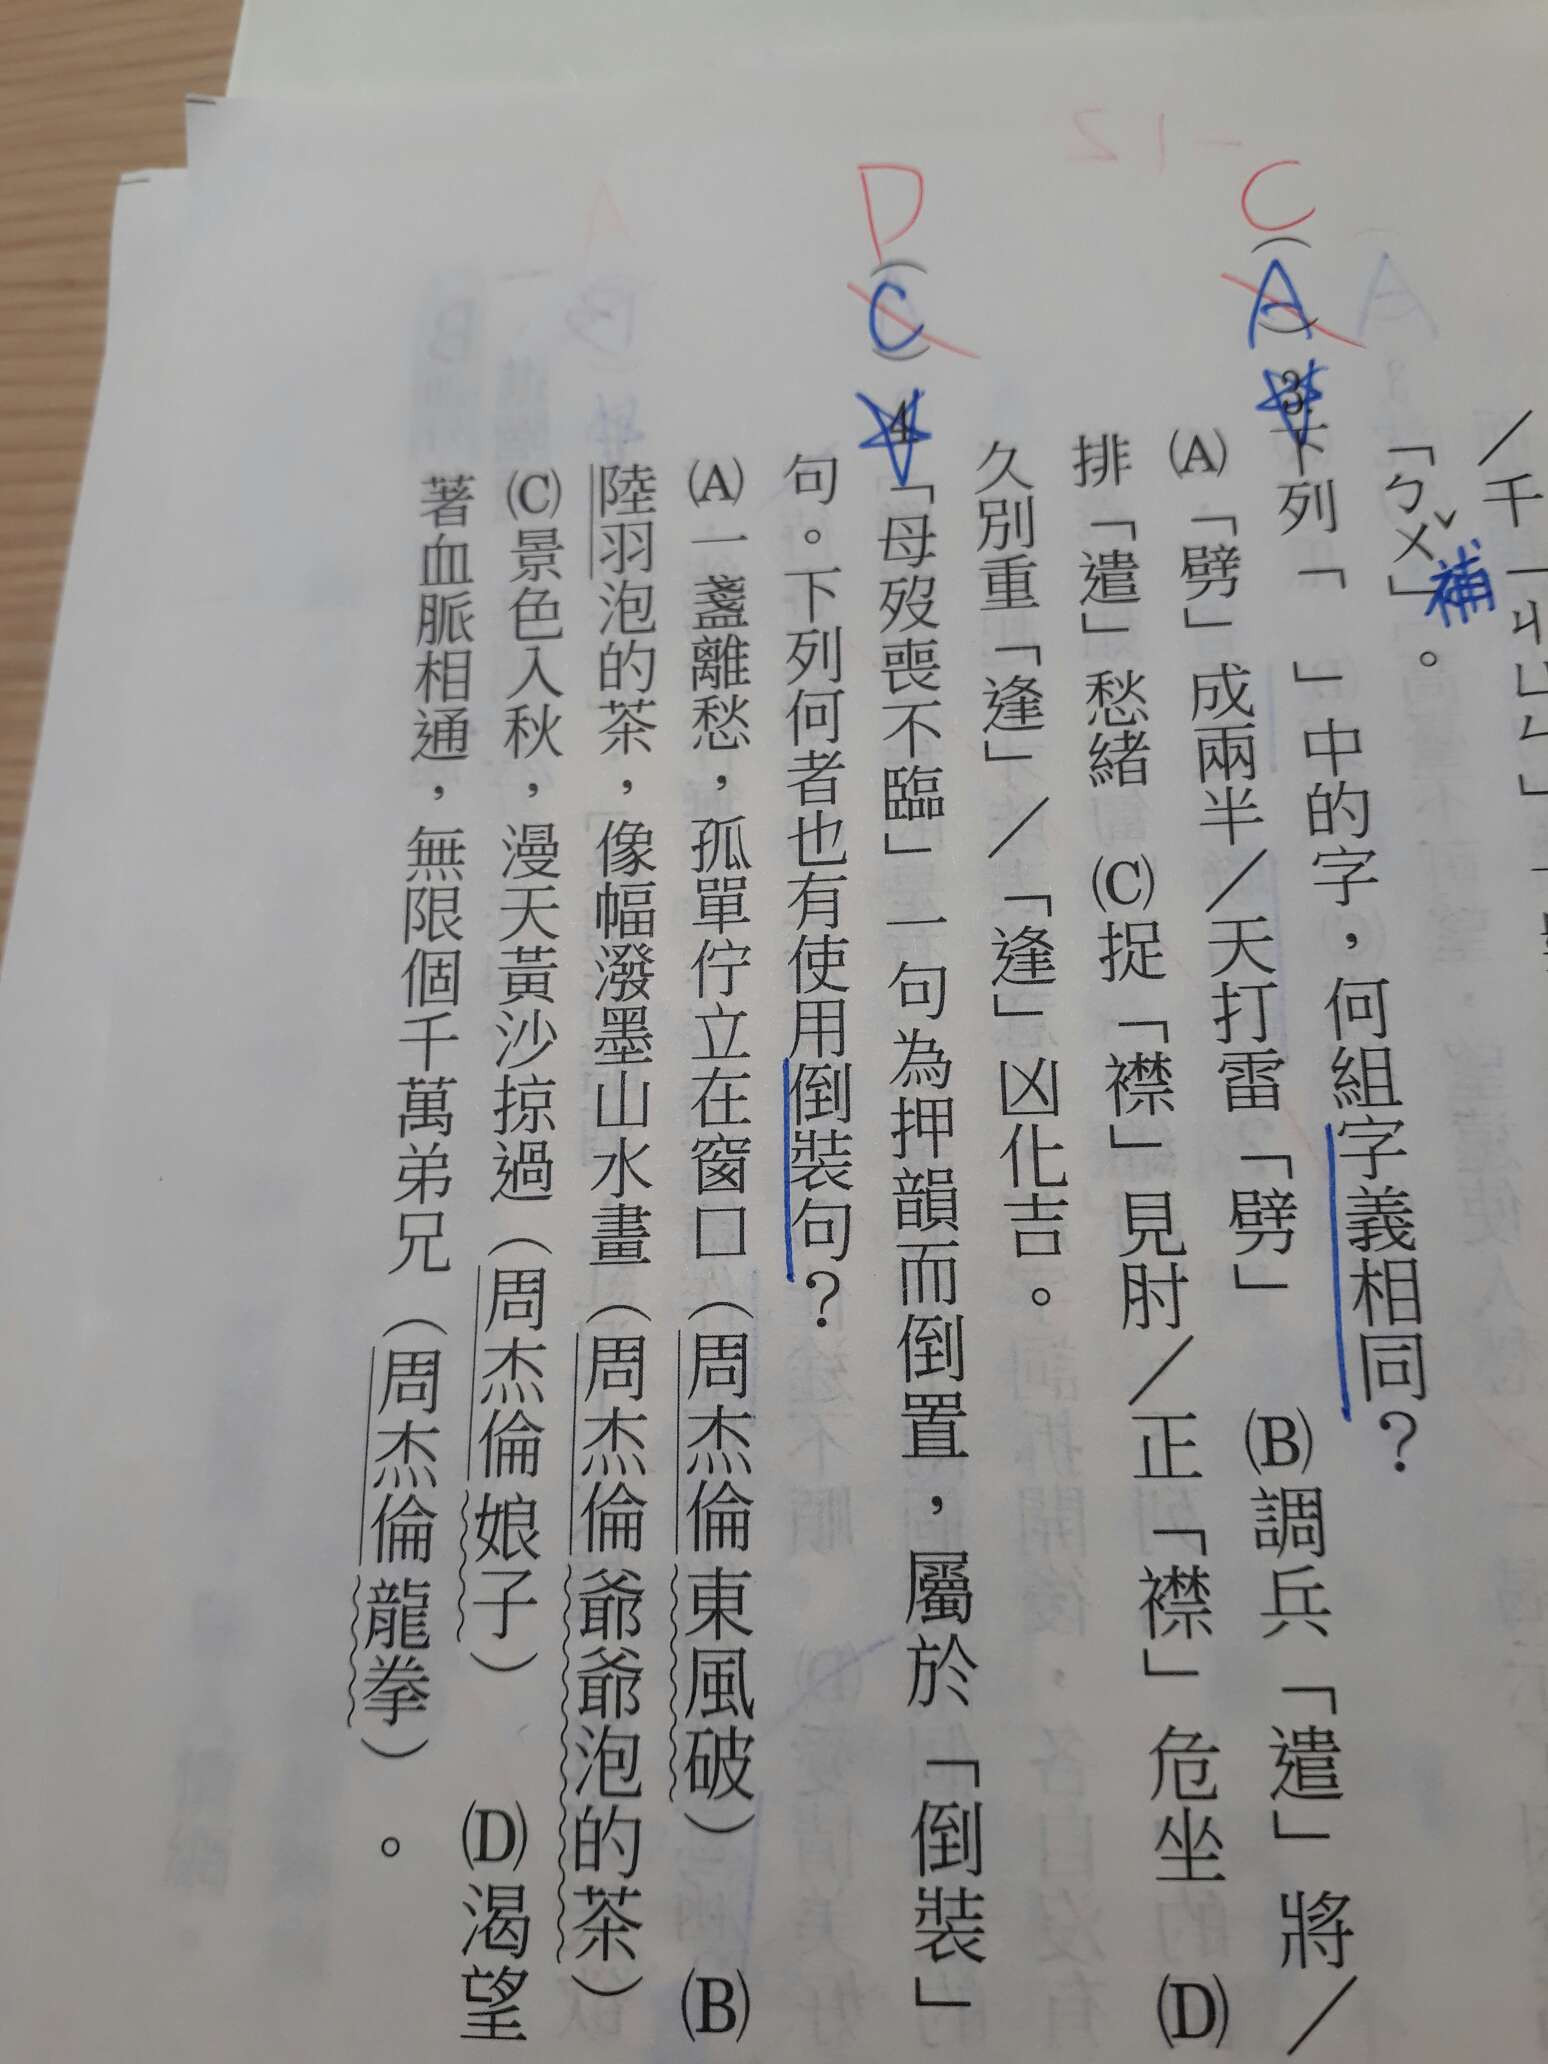 ／千ㄧㄐㄩㄣ」
「ㄅㄨˇ」。補
C（A）3.下列「　」中的字，何組字義相同？
(A)「劈」成兩半／天打雷「劈」　(B)調兵「遣」將／
排「遣」愁緒　(C)捉「襟」見肘／正「襟」危坐　(D)
久別重「逢」／「逢」凶化吉。
D（C）4.「母歿喪不臨」一句為押韻而倒置，屬於「倒裝」
句。下列何者也有使用倒裝句？
(A)一盞離愁，孤單佇立在窗口（周杰倫東風破）　(B)
陸羽泡的茶，像幅潑墨山水畫（周杰倫爺爺泡的茶）
(C)景色入秋，漫天黃沙掠過（周杰倫娘子）　(D)渴望
著血脈相通，無限個千萬弟兄（周杰倫龍拳）。